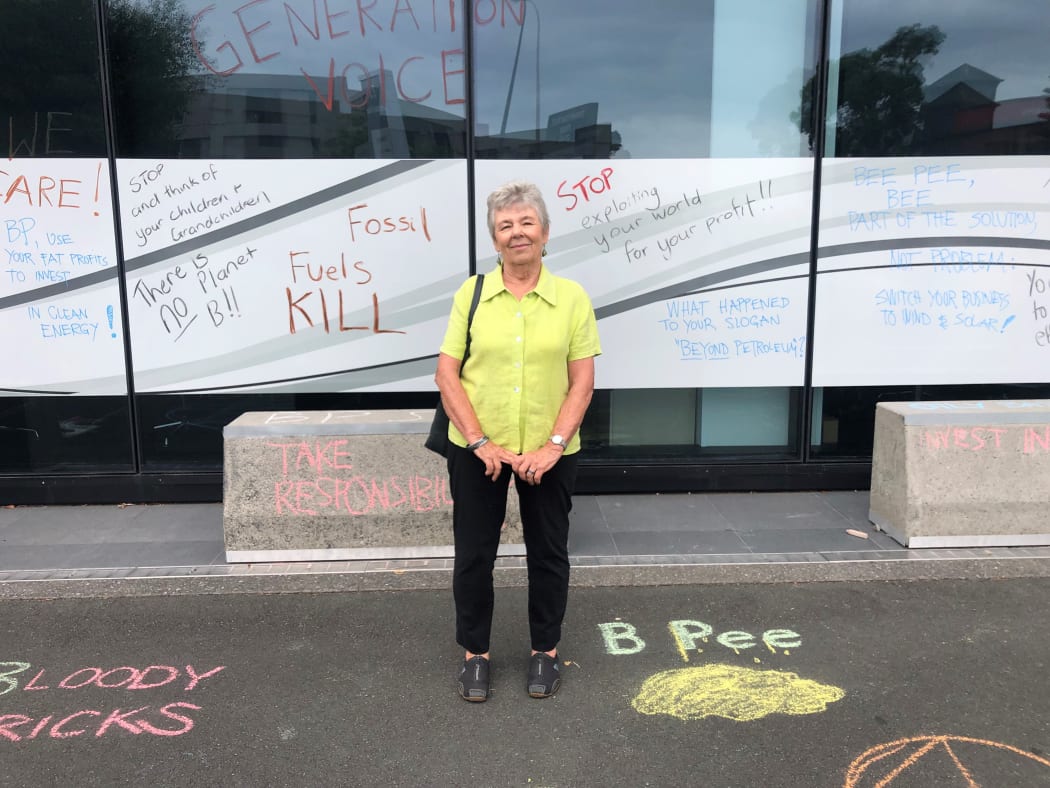 GENERATION
VOICE
WE
CARE!
BP, USE
YOUR FAT PROFITS
TO INVEST
IN CLEAN
ENERGY!
STOP
and think of
your children +
Grandchildren
There is
NO Planet
B!!
Fossil
Fuels
KILL
STOP
exploiting
your world
for your profit!!
WHAT HAPPENED
TO YOUR, SLOGAN
"BEYOND PETROLEUM"?
BEE PEE,
BEE
PART OF THE SOLUTION,
NOT PROBLEM:
SWITCH YOUR BUSINESS
TO WIND & SOLAR!
TAKE
RESPONSIBIL
INVEST IN
B Pee
BLOODY
PRICKS